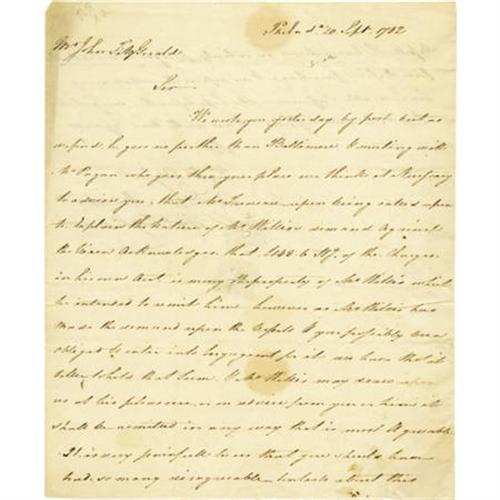 Philad.ª 20 Sept. 1782
Mr. John FitzGerald
Sir
We wrote you yesterday by post but as
we find he goes no further than Baltimore & meeting with
Mr. Pagan who goes thro your place we think it necessary
to advise you, that Mr. upon being called upon
to Explain the Nature of Mr. Hellies demand Against
the Acknowledges that of the Charges
in his own Acct. is many property of Mr. Hellies which
he intended to remit him however as Mr. Hellies has
made the demand upon the Vessel & you possibly been
obliged to enter into Engagement for it we have thot it
better to hold that Sum & Mr. Hellies may draw upon
us at his pleasure, or on advice from you or him it
shall be remitted in any way that is most Agreeable
It is very painfull to us that you should have
had so many disagreeable about this